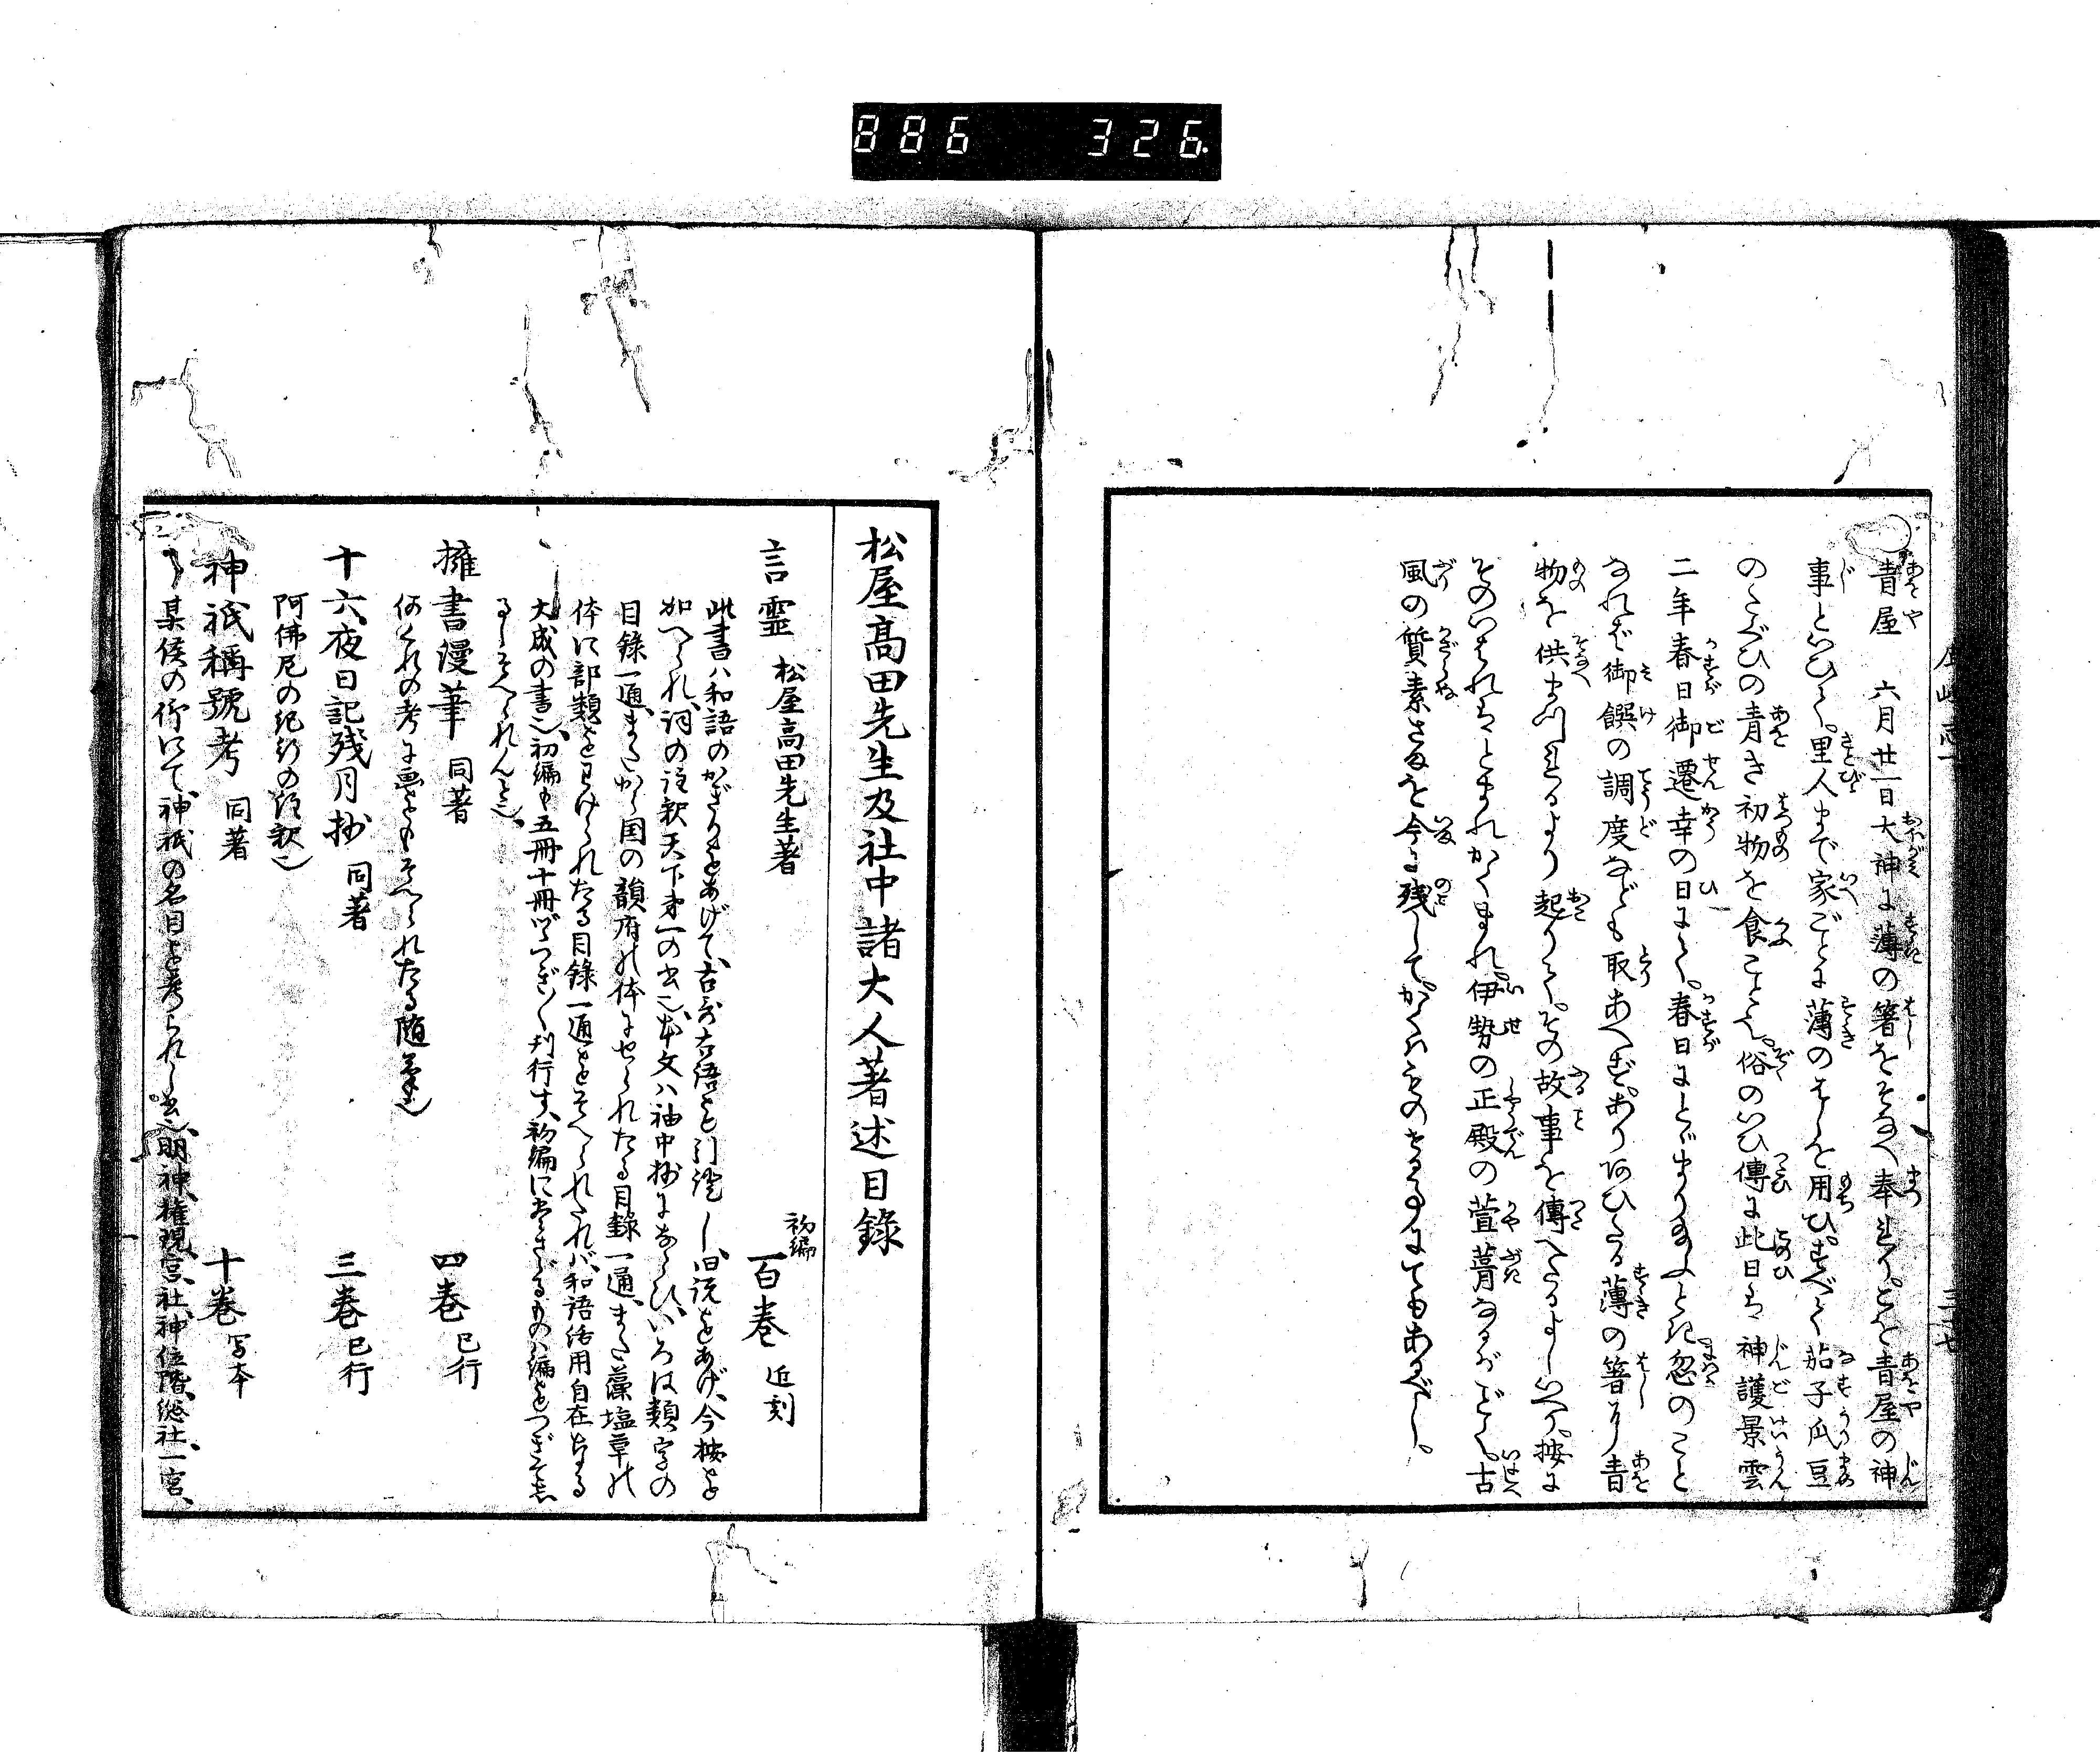 886 326
青屋 六月廿一日大神に薄の箸をそなへ奉れり。これを青屋の神
事といひて。里人まで家ごとに薄のはしを用ひ。すべて茄子瓜豆
のたぐひの青き初物を食ことゝす。俗のいひ傳に此日は神護景雲
二年春日御遷幸の日にて。春日にとゞまりなふと
なれば御饌の調度なども取あへず。あり
物を供
そのいはれはともあれかくまれ。伊勢の正殿の萱葺なるがごとく。古
風の質素さまを今に残して。
三十七
松屋高田先生及社中諸大人著述目録
言霊 松屋高田先生著 初編 百巻 近刻
此書ハ和語のかぎりをあげて、古哥古語を引證し、旧説をあげ、今按を
加へられ、詞の註釈天下第一の書也、本文ハ袖中抄にならひ、いろは類字の
目録一通、またから国の韻府の体にせられたる目録一通、また藻塩草の
体に部類をわけられたる目録一通をそへられたれバ、和語活用自在なる
大成の書也、初編も五冊十冊づゝつぎ〳〵刊行す、初編にあきざるものハ編をつぎて
擁書漫筆 同著 四巻 已行
何くれの考に画をもそへられたる随筆也
十六夜日記残月抄 同著 三巻 已行
阿佛尼の紀行の註釈也
神祇稱號考 同著 十巻 写本
某侯の仰にて神祇の名目を考られし書也、明神、権現、宮、社、神位階、総社、一宮、